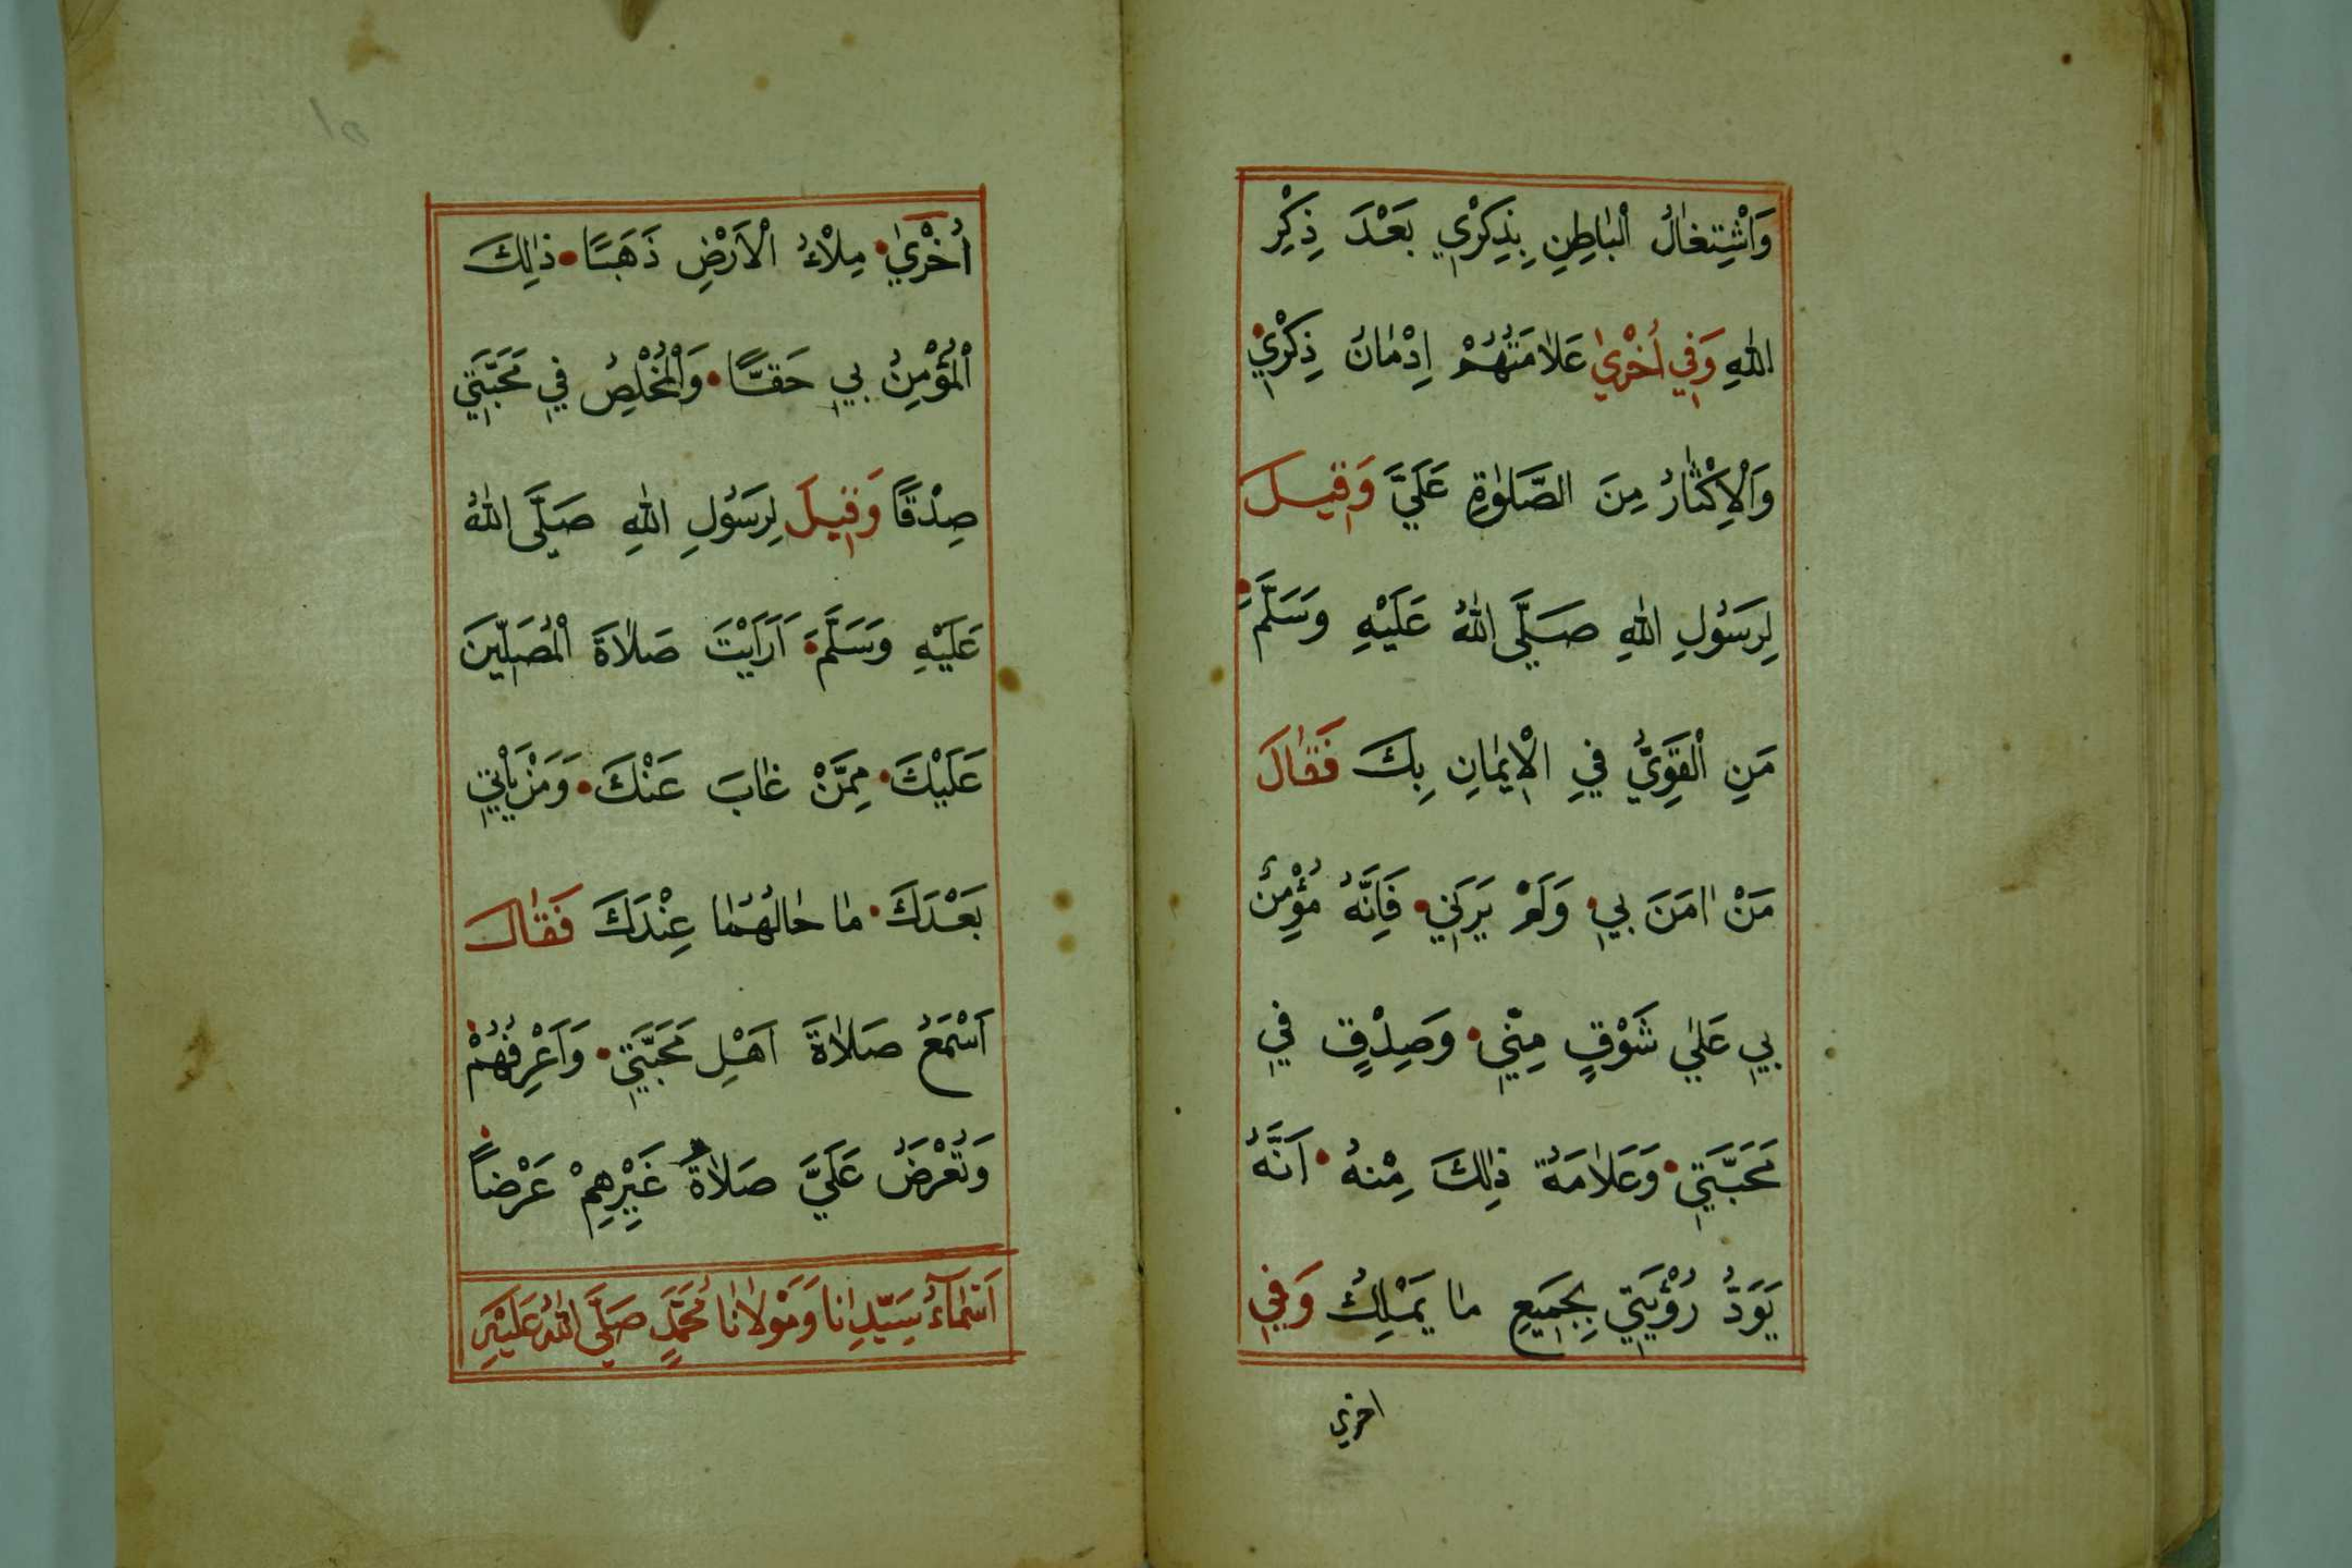 وَاشْتِغَالُ الْبَاطِنِ بِذِكْرِي بَعْدَ ذِكْرِ
اللهِ وَفِي اُخْرٰي عَلَامَتُهُمْ اِدْمَانُ ذِكْرِي
وَالْاِكْثَارُ مِنَ الصَّلٰوةِ عَلَيَّ وَقِيلَ
لِرَسُولِ اللهِ صَلَّى اللهُ عَلَيْهِ وَسَلَّمَ
مَنِ الْقَوِيُّ فِي الْاِيمَانِ بِكَ فَقَالَ
مَنْ اٰمَنَ بِي وَلَمْ يَرَنِي فَاِنَّهُ مُؤْمِنٌ
بِي عَلٰي شَوْقٍ مِنِّي وَصِدْقٍ فِي
مَحَبَّتِي وَعَلَامَةُ ذٰلِكَ مِنْهُ اَنَّهُ
يَوَدُّ رُؤْيَتِي بِجَمِيعِ مَا يَمْلِكُ وَفِي
اخري
اُخْرٰي مِلْاءُ الْاَرْضِ ذَهَبًا ذٰلِكَ
الْمُؤْمِنُ بِي حَقًّا وَالْمُخْلِصُ فِي مَحَبَّتِي
صِدْقًا وَقِيلَ لِرَسُولِ اللهِ صَلَّى اللهُ
عَلَيْهِ وَسَلَّمَ اَرَاَيْتَ صَلَاةَ الْمُصَلِّينَ
عَلَيْكَ مِمَّنْ غَابَ عَنْكَ وَمَنْ يَاْتِي
بَعْدَكَ مَا حَالُهُمَا عِنْدَكَ فَقَالَ
اَسْمَعُ صَلَاةَ اَهْلِ مَحَبَّتِي وَاَعْرِفُهُمْ
وَتُعْرَضُ عَلَيَّ صَلَاةُ غَيْرِهِمْ عَرْضًا
اَسْمَآءُ سَيِّدِنَا وَمَوْلَانَا مُحَمَّدٍ صَلَّى اللهُ عَلَيْهِ